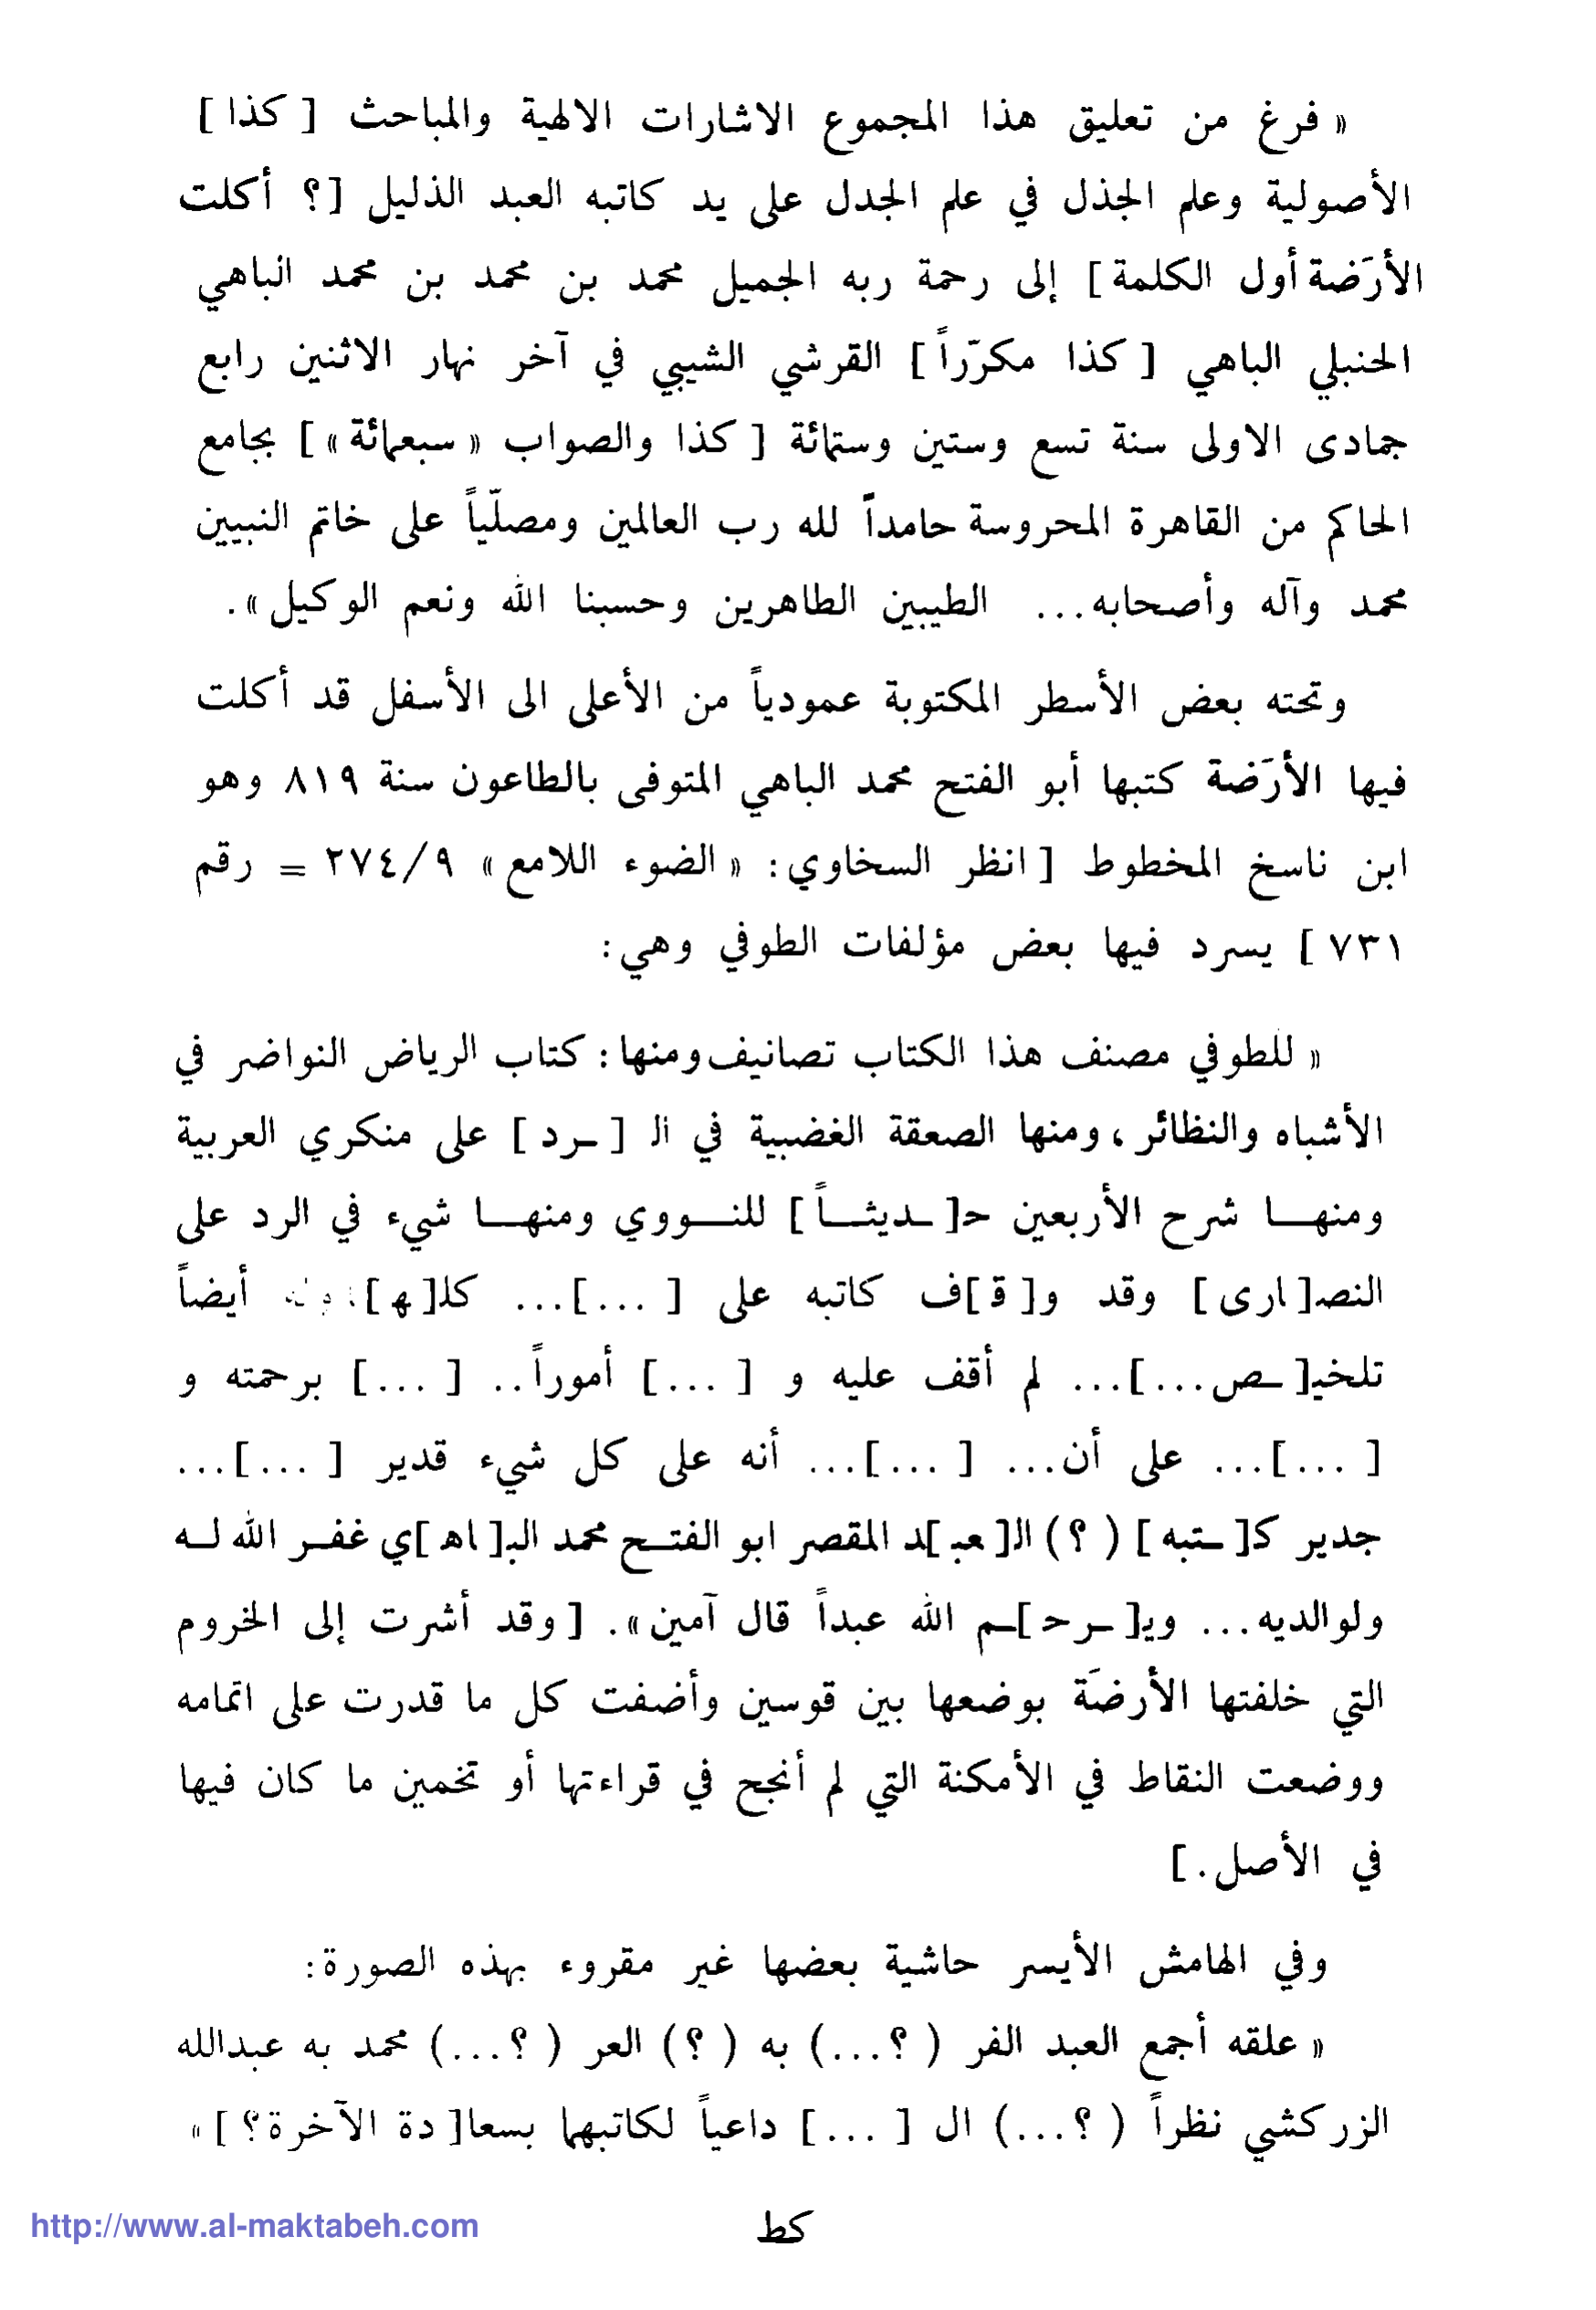 « فرغ من تعليق هذا المجموع الاشارات الالهية والمباحث [ كذا ]
الأصولية وعلم الجذل في علم الجدل على يد كاتبه العبد الذليل [؟ أكلت
الأرَضة أول الكلمة ] إلى رحمة ربه الجميل محمد بن محمد بن محمد الباهي
الحنبلي الباهي [ كذا مكرّراً ] القرشي الشيبي في آخر نهار الاثنين رابع
جمادى الاولى سنة تسع وستين وستمائة [ كذا والصواب « سبعمائة »] بجامع
الحاكم من القاهرة المحروسة حامداً لله رب العالمين ومصلّياً على خاتم النبيين
محمد وآله وأصحابه... الطيبين الطاهرين وحسبنا الله ونعم الوكيل ».
وتحته بعض الأسطر المكتوبة عمودياً من الأعلى الى الأسفل قد أكلت
فيها الأرَضة كتبها أبو الفتح محمد الباهي المتوفى بالطاعون سنة ٨١٩ وهو
ابن ناسخ المخطوط [ انظر السخاوي: « الضوء اللامع » ٢٧٤/٩ = رقم
٧٣١ ] يسرد فيها بعض مؤلفات الطوفي وهي:
« للطوفي مصنف هذا الكتاب تصانيف ومنها: كتاب الرياض النواضر في
الأشباه والنظائر، ومنها الصعقة الغضبية في الـ [ ـرد ] على منكري العربية
ومنهـــا شرح الأربعين حـ[ ـديثـــاً ] للنـــووي ومنهـــا شيء في الرد على
النصـ[ ارى ] وقد و[ قـ ]ف كاتبه على [ ... ]... كلـ[ ها ] أيضاً
تلخيـ[ ـص... ]... لم أقف عليه و [ ... ] أموراً.. [ ... ] برحمته و
[ ... ]... على أن... [ ... ]... أنه على كل شيء قدير [ ... ]...
جدير كـ[ ـتبه ] ( ؟ ) الـ[ ـعبـ ]ـد المقصر ابو الفتـــح محمد البـ[ ـاهـ ]ي غفــر الله لــه
ولوالديه... ويـ[ ـرحـ ]ـم الله عبداً قال آمين ». [ وقد أشرت إلى الخروم
التي خلفتها الأرضَة بوضعها بين قوسين وأضفت كل ما قدرت على اتمامه
ووضعت النقاط في الأمكنة التي لم أنجح في قراءتها أو تخمين ما كان فيها
في الأصل. ]
وفي الهامش الأيسر حاشية بعضها غير مقروء بهذه الصورة:
« علقه أجمع العبد الفر ( ؟... ) به ( ؟ ) العر ( ؟... ) محمد به عبدالله
الزركشي نظراً ( ؟... ) ال [ ... ] داعياً لكاتبهما بسعا[ دة الآخرة؟ ] »
كط
http://www.al-maktabeh.com